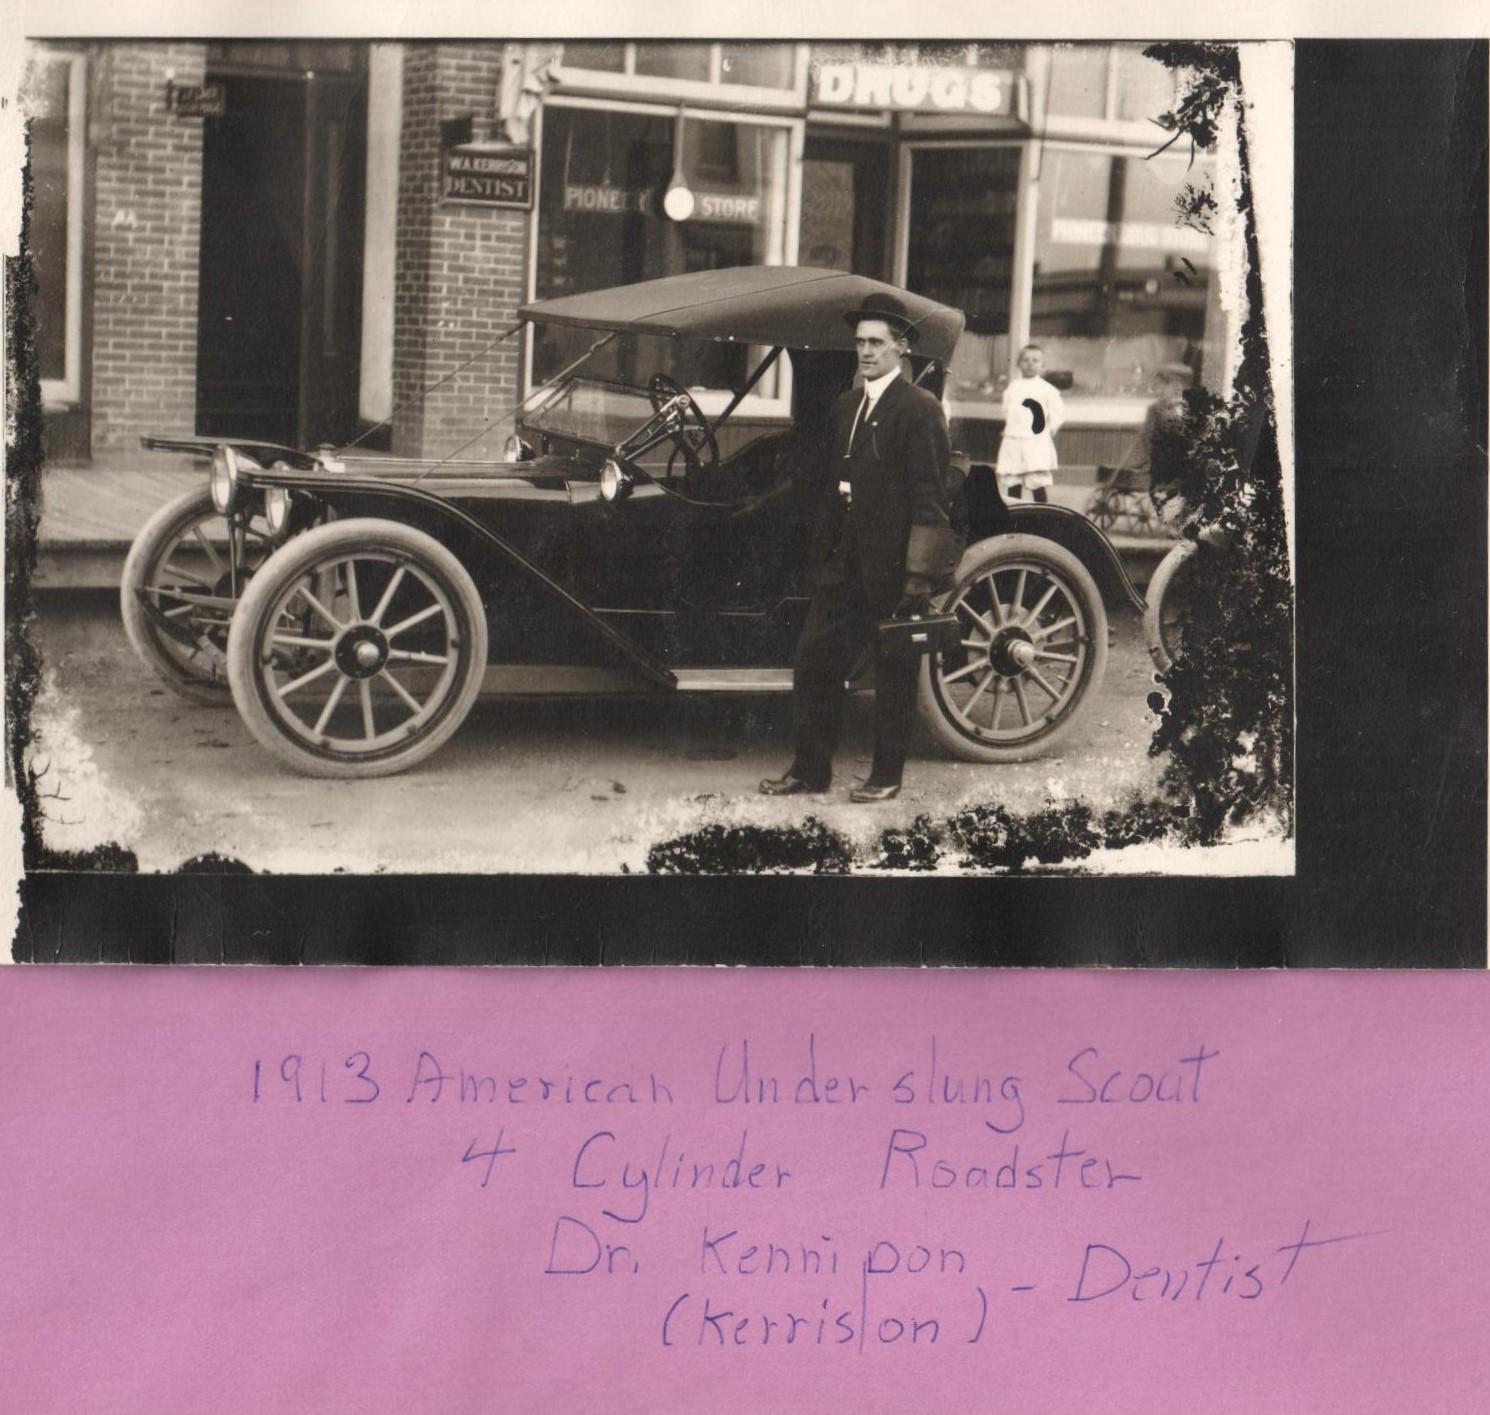 DRUGS
W.A.KERRISON
DENTIST
PIONEER STORE
PIONEER
1913 American Underslung Scout
4 Cylinder Roadster
Dr. Kennipon
(Kerrison) - Dentist